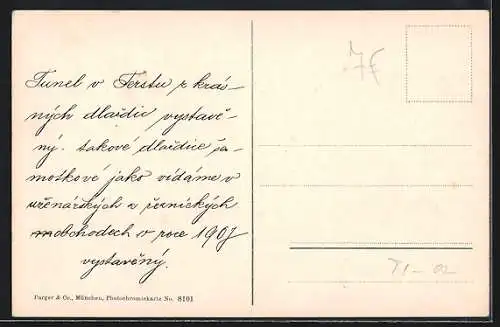 Tunel v Terstu z krás-
ných dlaždic vystavě-
ný. takové dlaždice ja-
motkové jako vídáme v
uzenářských a řeznických
obchodech v roce 1907
vystavěný.
Purger & Co., München, Photochromiekarte No. 8101
7£
T1-02